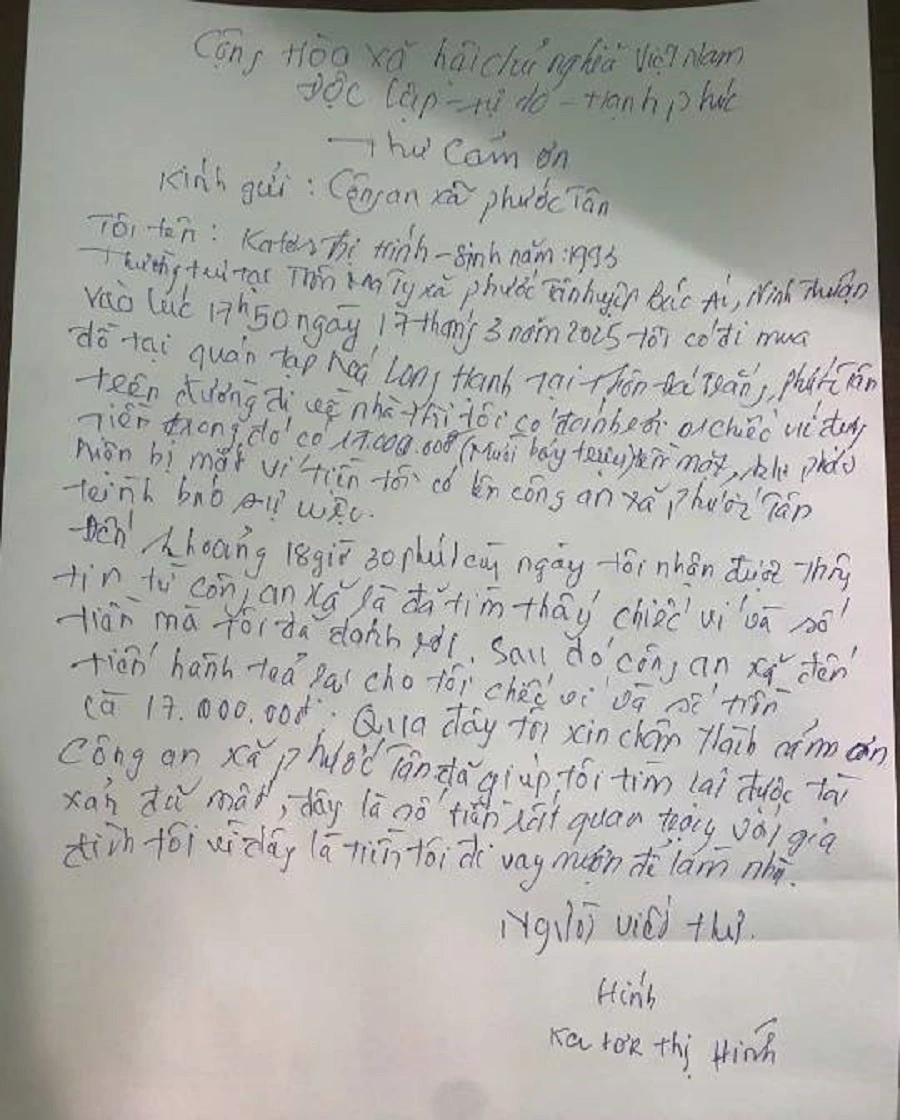 Cộng Hòa xã hội chủ nghĩa Việt Nam
Độc lập - tự do - Hạnh phúc
Thư Cảm ơn
Kính gửi : Công an xã phước Tân
Tôi tên : Kator Thị Hính - Sinh năm : 1993
Thường trú tại Thôn Ma Ty xã phước Tân huyện Bác Ái, Ninh Thuận
vào lúc 17h50 ngày 17 tháng 3 năm 2025 tôi có đi mua
đồ tại quán tạp hoá Long Hạnh Tại thôn Đá Trắng, phước Tân
trên đường đi về nhà thì tôi có đánh rơi 01 chiếc ví đựng
tiền trong đó có 17.000.000đ (Mười bảy triệu) tiền mặt, khi phát
hiện bị mất ví tiền tôi có lên công an xã phước Tân
trình báo sự việc.
Đến khoảng 18 giờ 30 phút cùng ngày tôi nhận được thông
tin từ công an xã là đã tìm thấy chiếc ví và số
tiền mà tôi đã đánh rơi. Sau đó công an xã đến
tiến hành trả lại cho tôi chiếc ví và số tiền
là 17.000.000đ. Qua đây tôi xin chân thành cảm ơn
Công an xã phước Tân đã giúp tôi tìm lại được tài
xản đã mất, đây là số tiền rất quan trọng với gia
đình tôi vì đây là tiền tôi đi vay mượn để làm nhà.
Người viết thư.
Hính
Ka tơr thị Hính